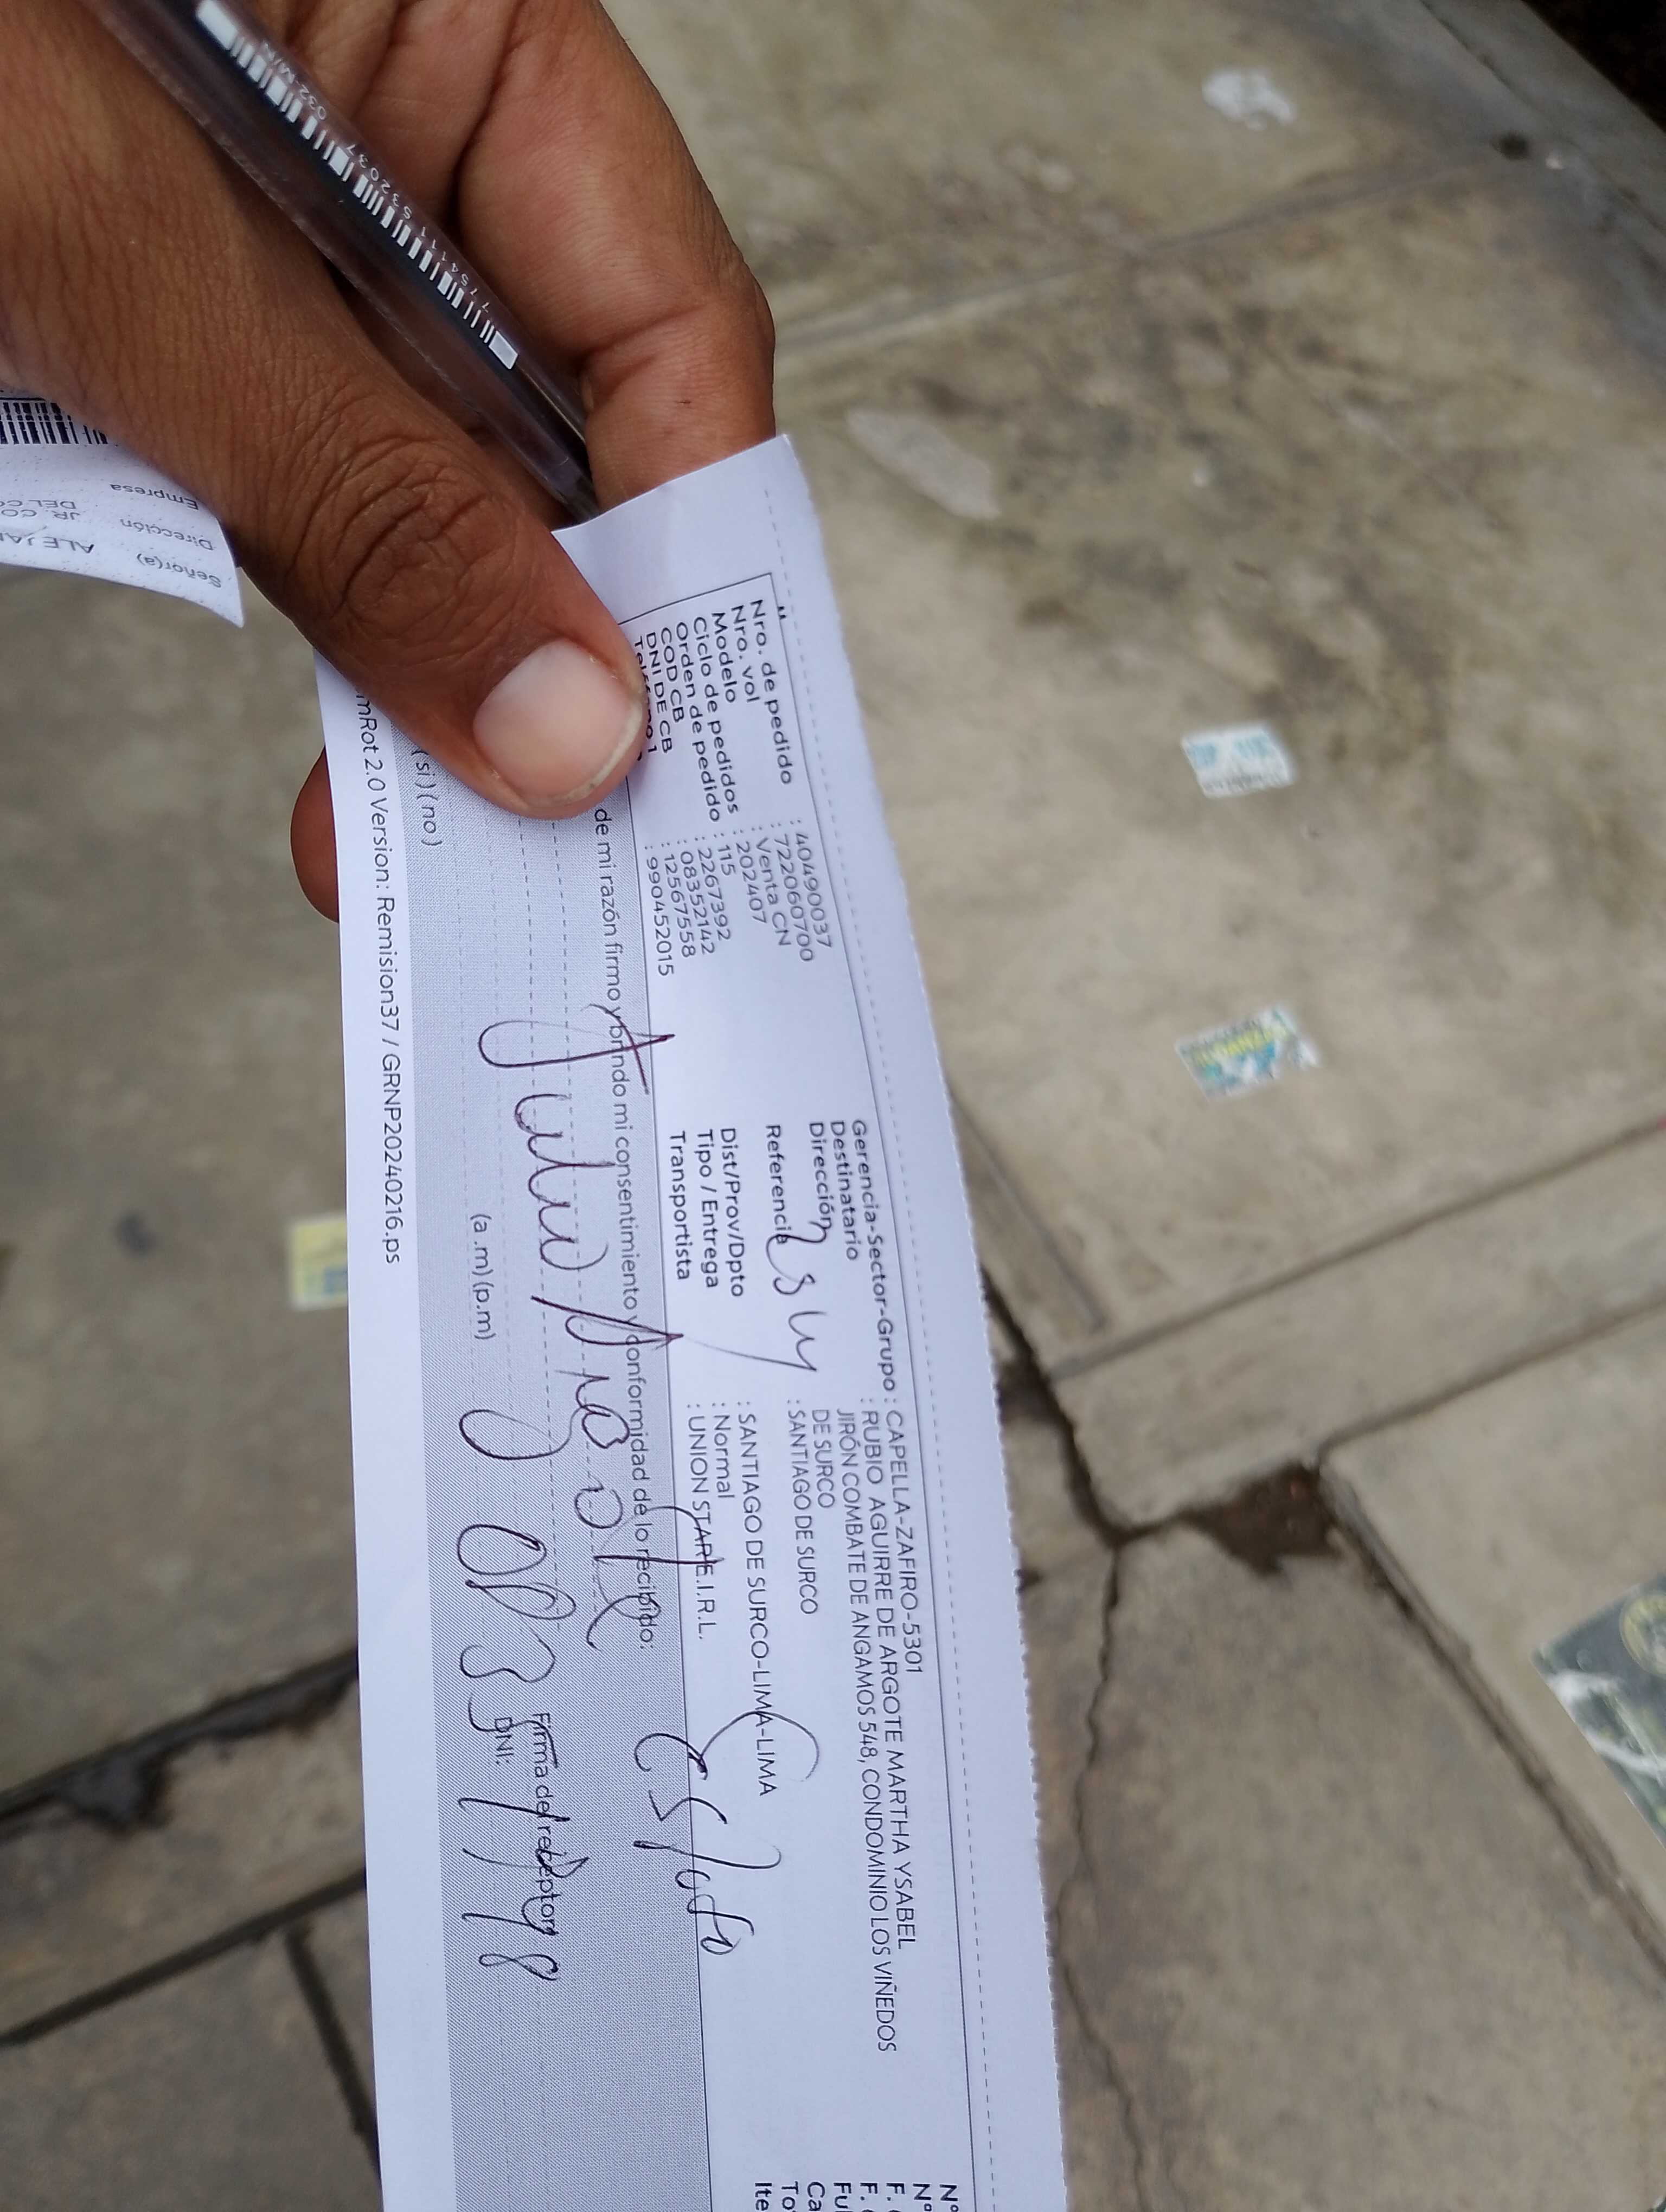 Nro. de pedido : 40490037
Nro. vol : 722060700
Modelo : Venta CN
Ciclo de pedidos : 202407
Orden de pedido : 115
COD CB : 2267392
DNI DE CB : 08352142
: 12567558
: 990452015
Gerencia-Sector-Grupo : CAPELLA-ZAFIRO-5301
Destinatario : RUBIO AGUIRRE DE ARGOTE MARTHA YSABEL
Dirección JIRÓN COMBATE DE ANGAMOS 548, CONDOMINIO LOS VIÑEDOS
DE SURCO
Referencia : SANTIAGO DE SURCO
Dist/Prov/Dpto : SANTIAGO DE SURCO-LIMA-LIMA
Tipo / Entrega : Normal
Transportista : UNION STAR E.I.R.L.
N°
N°
F.
F.
de mi razón firmo y brindo mi consentimiento y conformidad de lo recibido:
esposo
Firma del receptor
DNI:
(a .m) (p.m)
( si ) ( no )
mRot 2.0 Version: Remision37 / GRNP20240216.ps
Señor(a)
Dirección
JR. CO
Empresa
7 754111 932037
032-M/R